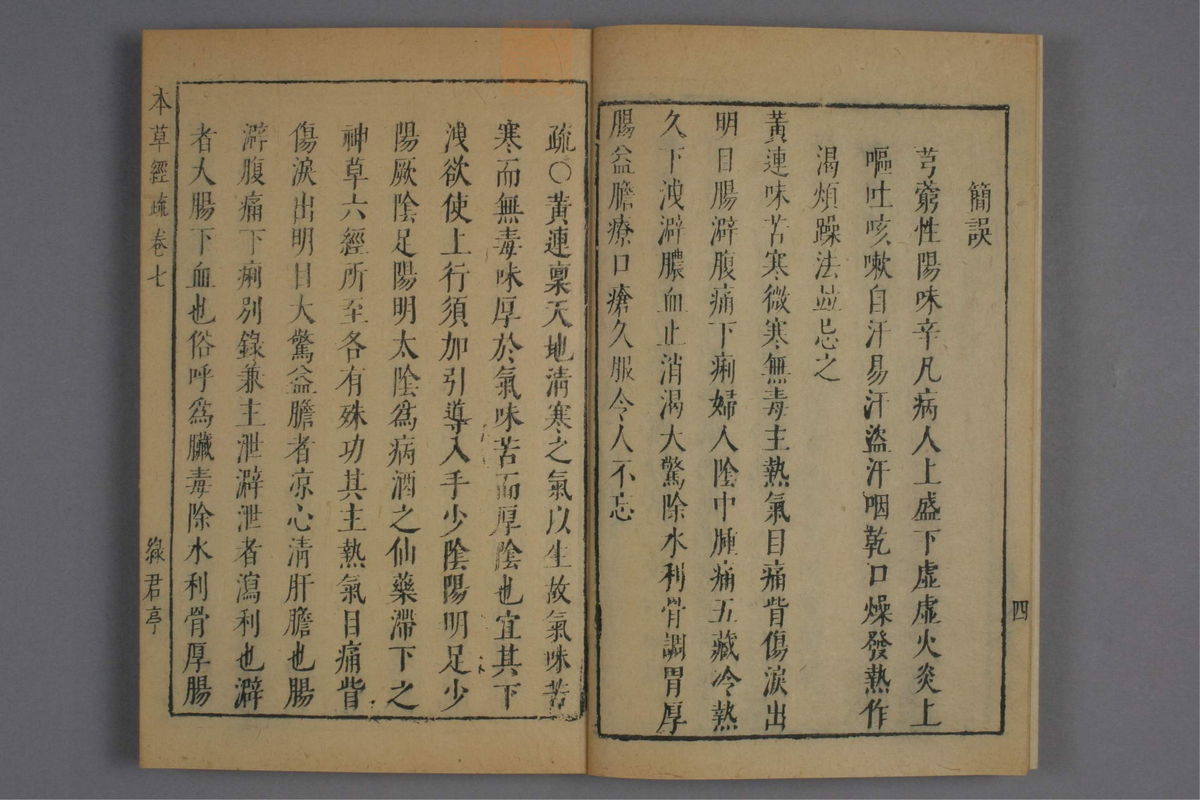 簡誤
芎藭性陽味辛凡病人上盛下虛虛火炎上
嘔吐咳嗽自汗易汗盜汗咽乾口燥發熱作
渴煩躁法並忌之
黃連味苦寒微寒無毒主熱氣目痛眥傷淚出
明目腸澼腹痛下痢婦人陰中腫痛五藏冷熱
久下洩澼膿血止消渴大驚除水利骨調胃厚
腸益膽療口瘡久服令人不忘
四
疏〇黃連稟天地清寒之氣以生故氣味苦
寒而無毒味厚於氣味苦而厚陰也宜其下
洩欲使上行須加引導入手少陰陽明足少
陽厥陰足陽明太陰為病酒之仙藥滯下之
神草六經所至各有殊功其主熱氣目痛眥
傷淚出明目大驚益膽者凉心清肝膽也腸
澼腹痛下痢別錄兼主泄澼泄者瀉利也澼
者大腸下血也俗呼為臟毒除水利骨厚腸
本草經疏卷七
綠君亭